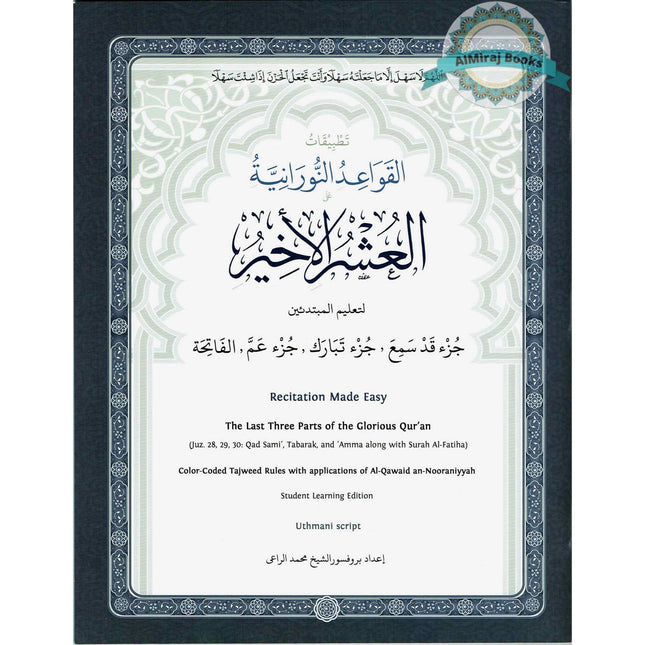 AlMiraj Books
اللَّهُمَّ لَا سَهْلَ إِلَّا مَا جَعَلْتَهُ سَهْلًا وَأَنْتَ تَجْعَلُ الْحَزْنَ إِذَا شِئْتَ سَهْلًا
تَطْبِيقَاتُ
القَوَاعِدُ النُّورَانِيَّةُ
عَلَى
العُشْرِ الأَخِيرُ
لتعليم المبتدئين
جُزْء قَدْ سَمِعَ , جُزْء تَبَارَك , جُزْء عَمَّ , الفَاتِحَة
Recitation Made Easy
The Last Three Parts of the Glorious Qur'an
(Juz. 28, 29, 30: Qad Sami', Tabarak, and 'Amma along with Surah Al-Fatiha)
Color-Coded Tajweed Rules with applications of Al-Qawaid an-Nooraniyyah
Student Learning Edition
Uthmani script
إعداد بروفسور الشيخ محمد الراعى